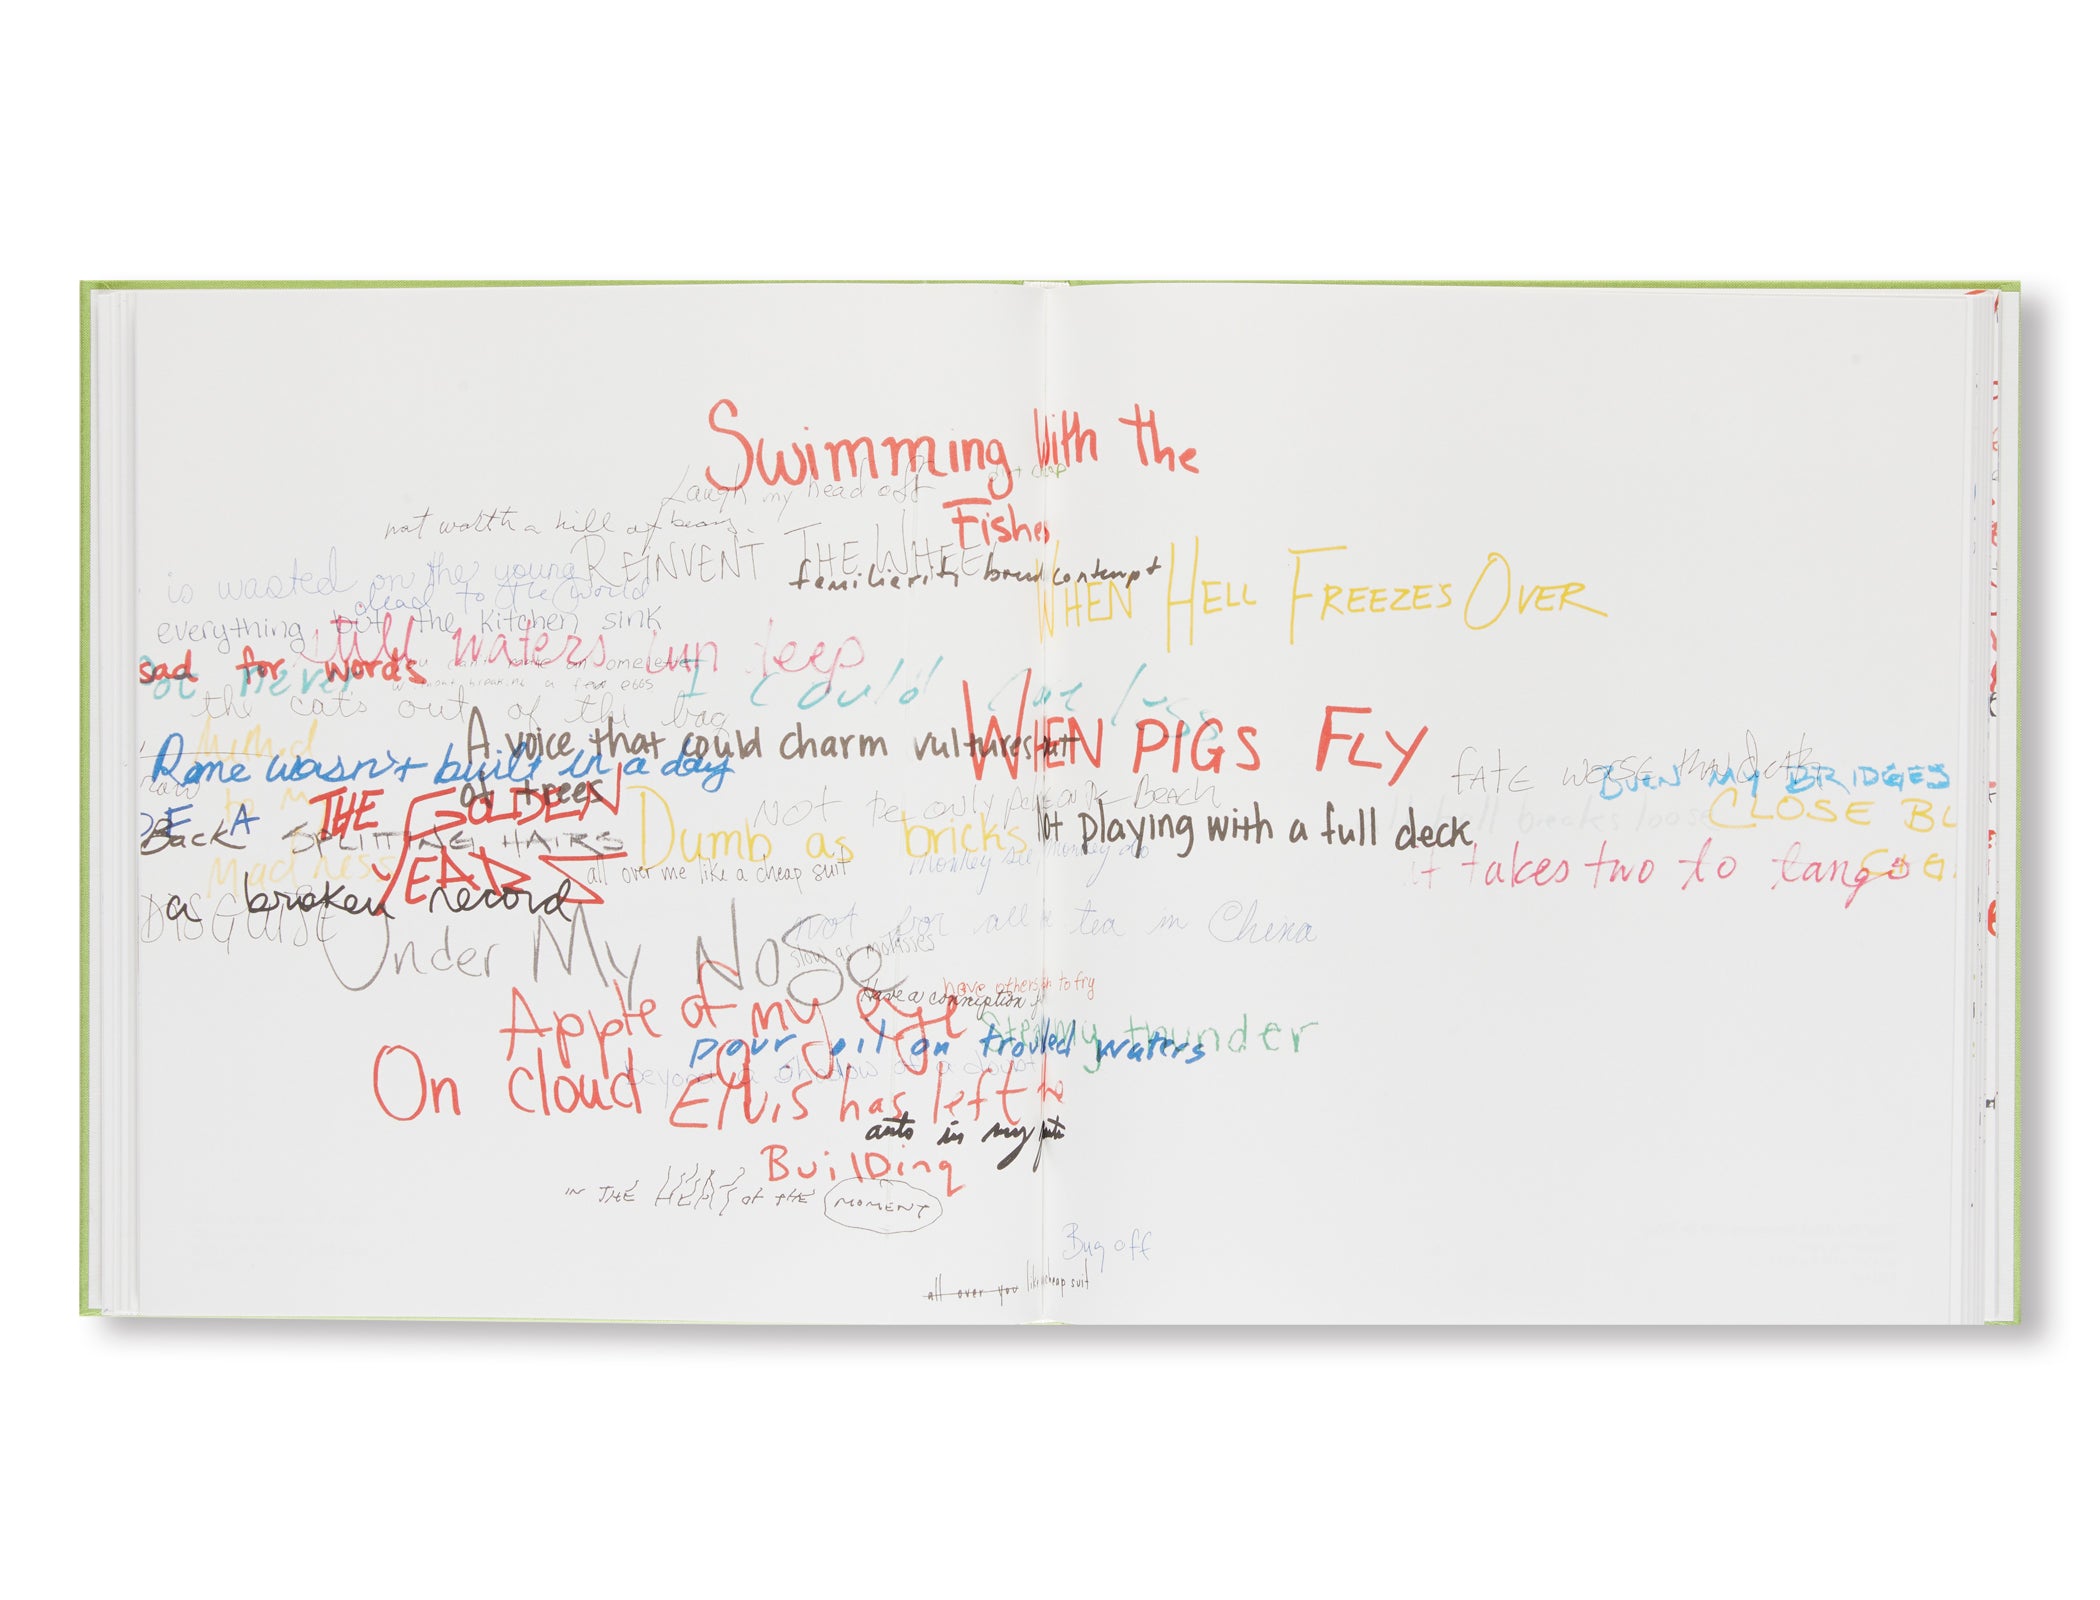 Swimming with the
Fishes
dirt cheap
Laugh my head off
not worth a hill of beans.
REINVENT THE WHEEL
familiarity breed contempt
is wasted on the young
dead to the world
WHEN HELL FREEZES OVER
everything but the kitchen sink
still waters run deep
sad for words
you can't make an omelette
without breaking a few eggs
never
I could care less
the cats out of the bag
A voice that could charm vultures out
of trees
WHEN PIGS FLY
Rome wasn't built in a day
FATE WORSE than death
BURN MY BRIDGES
THE GOLDEN
YEARS
Not the only pebble on the Beach
all hell breaks loose
CLOSE BU
BE A
Back
SPLITTING HAIRS
Dumb as bricks
not playing with a full deck
Monkey see monkey do
Madness
all over me like a cheap suit
it takes two to tango
a broken record
DISGUISE
Under My Nose
not for all the tea in China
slow as molasses
have others fish to fry
Have a connniption
Apple of my eye
Steal my thunder
pour oil on trouled waters
beyond a shadow of a doubt
On cloud
Elvis has left the
Building
ants in my pants
IN THE HEAT OF THE MOMENT
Bug off
all over you like a cheap suit